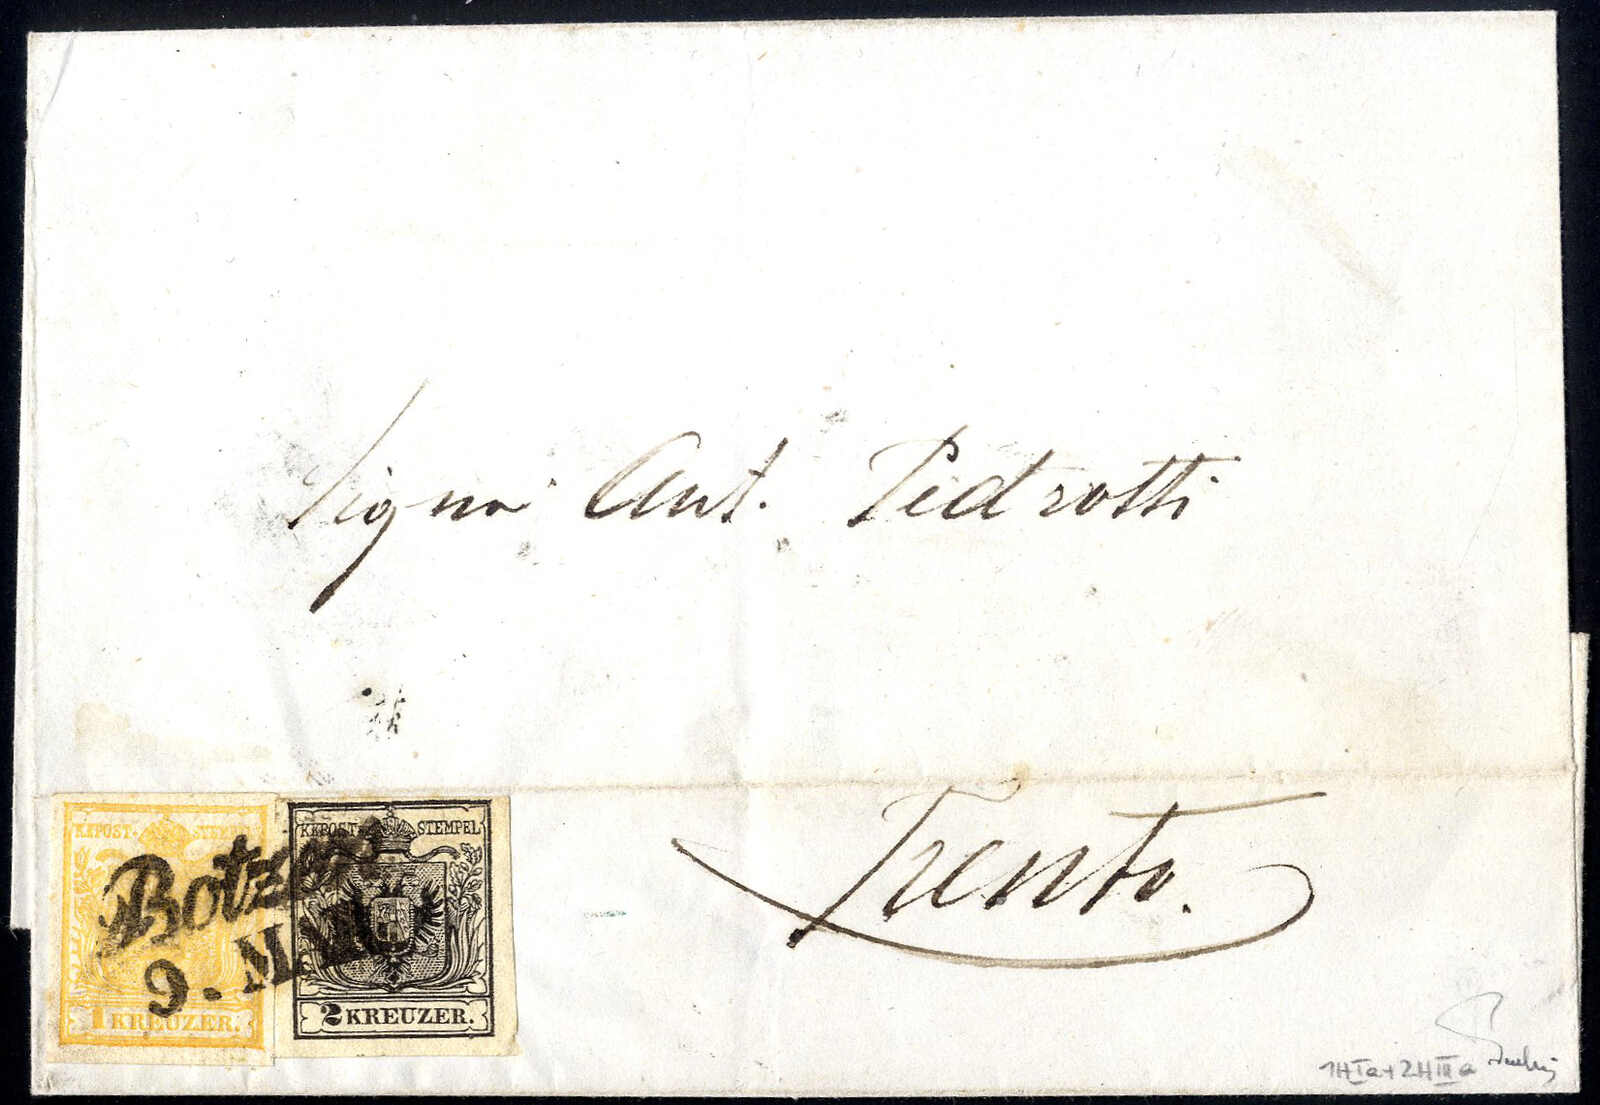 Signor Ant. Pedrotti
Trento.
KKPOST-STEMPEL
1 KREUZER.
KKPOST-STEMPEL
2 KREUZER.
Botzen
9. MAI
1HIa+2HIIIa